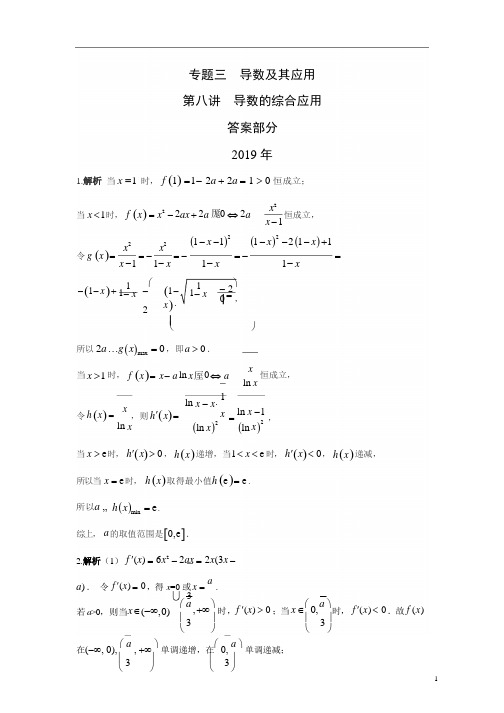 专题三 导数及其应用
第八讲 导数的综合应用
答案部分
2019 年
1.解析 当 x = 1 时，f(1) = 1 − 2a + 2a = 1 > 0 恒成立；
当 x < 1 时，f(x) = x² − 2ax + 2a 厖0 ⇔ 2a x²/(x − 1) 恒成立，
令 g(x) = x²/(x − 1) = − x²/(1 − x) = − (1 − x − 1)²/(1 − x) = − ((1 − x)² − 2(1 − x) + 1)/(1 − x) =
所以 2a …g(x)max = 0，即 a > 0．
当 x > 1 时，f(x) = x − a ln x 厖0 ⇔ a x/ln x 恒成立，
令 h(x) = x/ln x，则 h′(x) = (ln x − x·1/x)/(ln x)² = (ln x − 1)/(ln x)²，
当 x > e 时，h′(x) > 0，h(x) 递增，当 1 < x < e 时，h′(x) < 0，h(x) 递减，
所以当 x = e 时，h(x) 取得最小值 h(e) = e．
所以 a „ h(x)min = e．
综上，a 的取值范围是[0,e]．
2.解析（1）f′(x) = 6x² − 2ax = 2x(3x −
a)． 令 f′(x) = 0，得 x=0 或 x = a/3．
若 a>0，则当 x ∈ (−∞,0) ∪ (a/3, +∞) 时，f′(x) > 0；当 x ∈ (0, a/3) 时，f′(x) < 0．故 f(x)
在(−∞, 0), (a/3, +∞) 单调递增，在 (0, a/3) 单调递减；
1